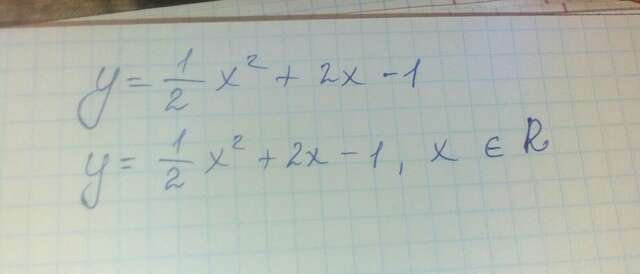 y = 1/2 x² + 2x - 1
y = 1/2 x² + 2x - 1, x ∈ R